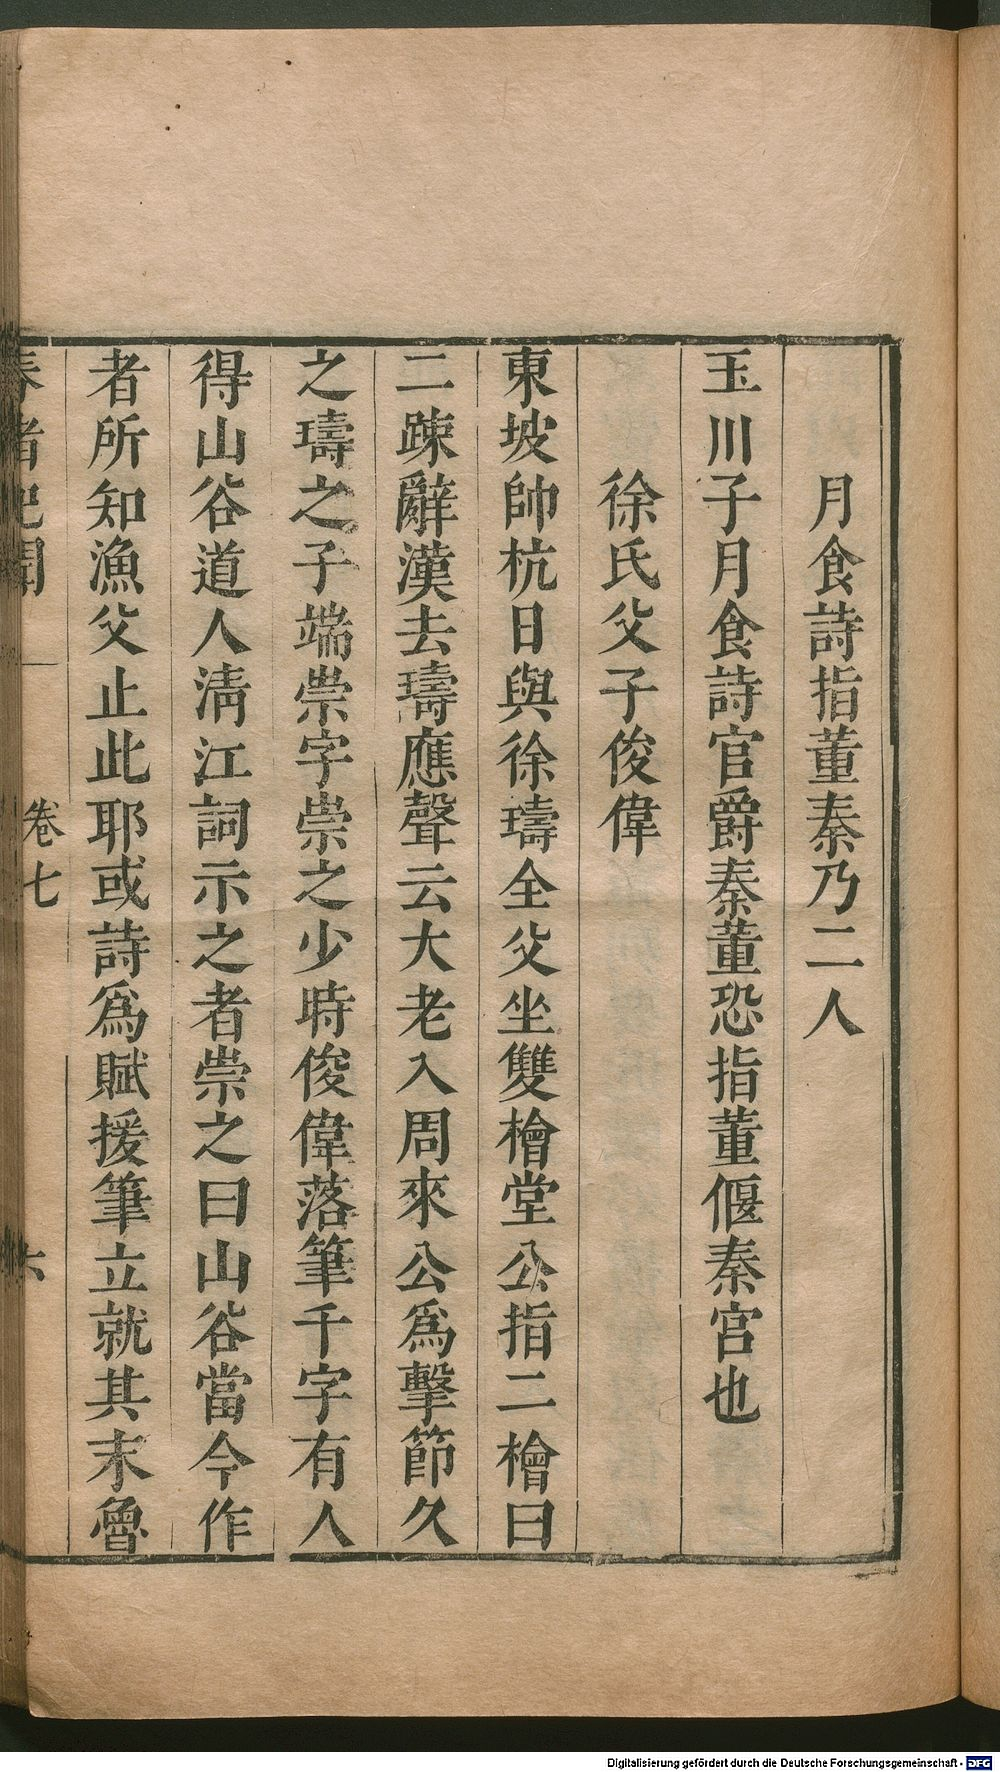 月食詩指董秦乃二人
玉川子月食詩官爵秦董恐指董偃秦宮也
徐氏父子俊偉
東坡帥杭日與徐璹全父坐雙檜堂公指二檜曰
二踈辭漢去璹應聲云大老入周來公爲擊節久
之璹之子端崇字崇之少時俊偉落筆千字有人
得山谷道人清江詞示之者崇之曰山谷當今作
者所知漁父止此耶或詩爲賦援筆立就其末魯
春渚紀聞 卷七 六
Digitalisierung gefördert durch die Deutsche Forschungsgemeinschaft - DFG